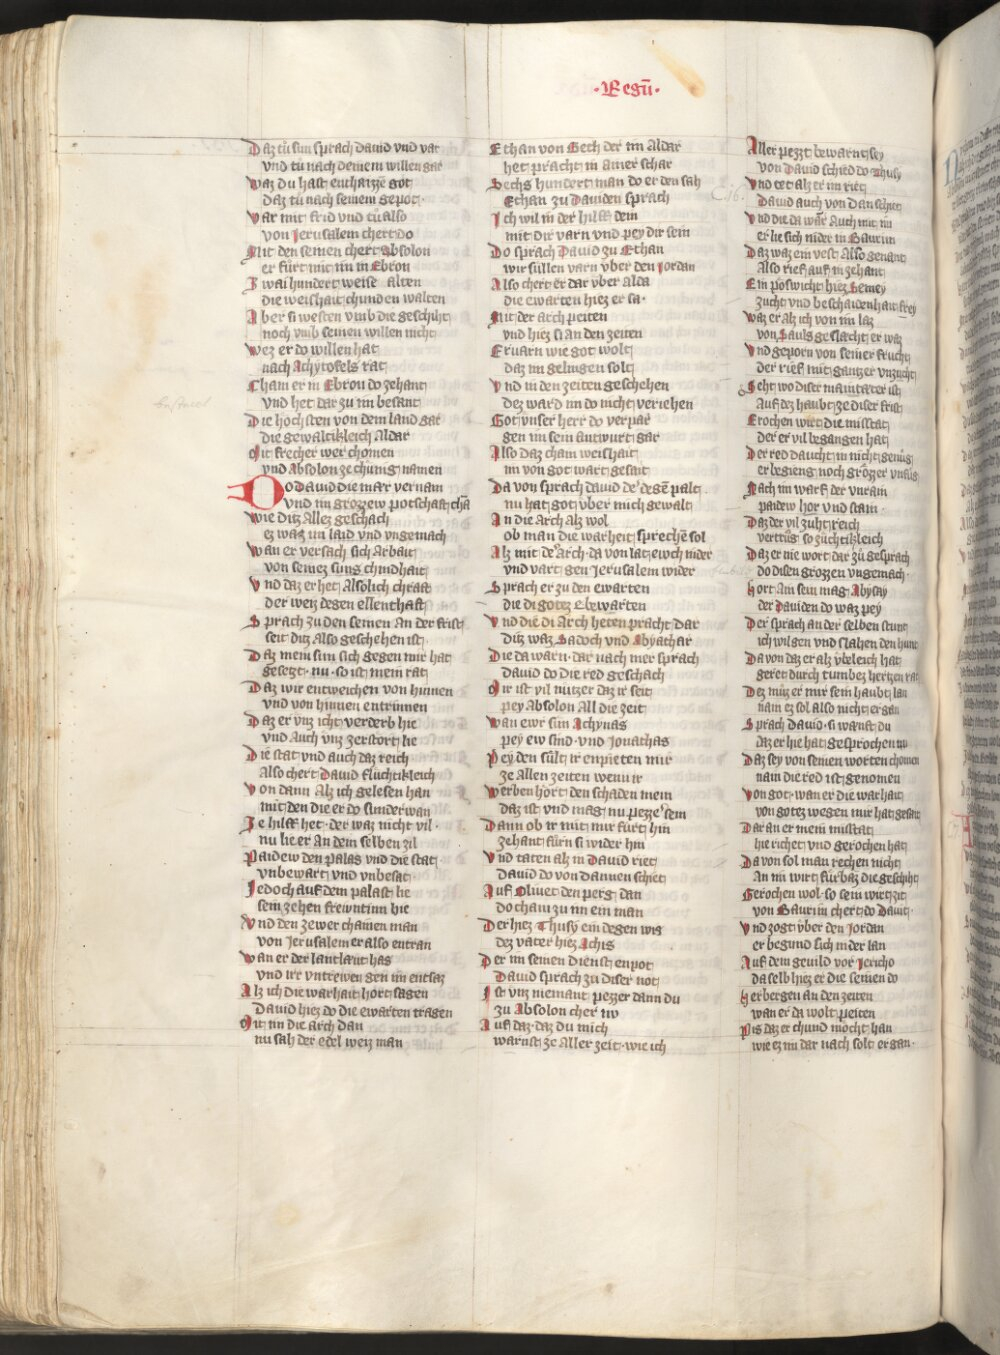 ·Regū·
Daz tuͤ sun sprach dauid vnd var
vnd tu nach deinem willen gar
Waz du hast enthaizze got
daz tu nach seinem gepot·
Var mit frid vnd tu also
von Jerusalem chert do
Mit den seinen chert Absolon
er fuͤrt mit im in Ebron
Zwai hundert weise alten
die weishait chunden walten
Aber si westen vmb die geschiht
noch vmb seinen willen nicht
Wez er do willen hat
nach Achytofels rat
Cham er in Ebron do zehant
vnd het dar zu im besant
Die hochsten von dem land gar
die gewaltikleich aldar
Mit frecher wer chomen
vnd Absolon ze chunig namen
Do dauid die mær vernam
vnd im grozzew potschaft chā
Wie ditz allez geschach
ez waz im laid vnd vngemach
Wan er versach sich arbait
von seinez suns chindhait
Vnd daz er het alsolich chraft
der weiz degen ellenthaft
Sprach zu den seinen an der frist
seit ditz also geschehen ist
Daz mein sun sich gegen mir hat
gesetzt· nu· so ist mein rat
Daz wir entweichen von hinnen
vnd von hinnen entrinnen
Daz er vns icht verderb hie
vnd auch vns zerstort hie
Die stat vnd auch daz reich
also chert Dauid fluchtikleich
Von dann alz ich gelesen han
mit den die er do sunder wan
Ze hilff het· der waz nicht vil·
nu lie er an dem selben zil
Paidew den palas vnd die stat
vnbewart vnd vnbesat·
Jedoch auf dem palast lie
sein zehen frewntinn hie
Vnd den zewer chamen man
von Jerusalem er also entran
Wan er der lantlæut has
vnd irr vntrewen gen im entsaz
Alz ich die warhait hort sagen
Dauid hiez do die ewarten tragen
Mit im die arch dan
nu sah der edel weiz man
Ethan von Gech der im aldar
het pracht in ainer schar
Sechs hundert man do er den sah
Ethan zu Dauiden sprach
Ich wil in der hilff dein
mit dir varn vnd pey dir sein
Do sprach Dauid zu Ethan
wir sullen varn vber den Jordan
Also chert er dar vber alda
die ewarten hiez er sa·
Mit der arch peiten
vnd hiez si an den zeiten
Eruarn wie got wolt
daz im gelingen solt
Vnd in den zeiten geschehen
dez ward im do nicht veriehen
Got vnser herr do verpar
gen im sein antwurt gar
Also daz cham weishait
im von got wart gesait
Da von sprach dauid de' degē palt
nu hat got vber mich gewalt
An die arch alz wol
ob man die warheit sprechē sol
Alz mit de' arch· da von lat ewch nider
vnd vart gen Jerusalem wider
Sprach er zu den ewarten
die di gotez e bewarten
Vnd die di arch heten pracht dar
ditz waz Sadoch vnd Abyathar
Die da warn· dar nach mer sprach
dauid do die red geschach
Mir ist vil nutzer daz ir seit
pey Absolon all die zeit
Wan ewr sun Achynas
pey ew sind· vnd Jonathas
Pey den sult ir enpieten mir
ze allen zeiten wenn ir
Werben hort den schaden mein
daz ist vnd mag nu pezze' sein
Dann ob ir mit mir furt hin
zehant furn si wider hin
Vnd taten alz in Dauid riet
dauid do von dannen schiet
Auf Oliuet den perg dan
do cham zu im ein man
Der hiez Thusy ein degen wis
dez vater hiez Achis
Der im seinen dienst enpot
Dauid sprach zu diser not
Ist vns niemant pezzer dann du
zu Absolon cher nv
Auf daz· daz du mich
warnst ze aller zeit· wie ich
Aller pezzt bewarnt sey
von Dauid schied do Thusy
Vnd tet alz er im riet
Dauid auch von dan schiet
Vnd die da wār auch mit im
er lie sich nider in Baurim
Daz waz ein vest also genant
also rief auf in zehant
Ein poswicht hiez Semey
zucht vnd beschaidenhait frey
Waz er alz ich von im laz
von Sauls geslacht er waz
Vnd geporn von seiner frucht
der rief mit gantzer vnzucht
Seht wo diser maintater ist
auf dez haubt ze diser frist
Erochen wirt die missetat
der er vil begangen hat
Der red daucht in nicht genug
er begieng noch grozzer
Nach im warf der vnrain
paidew hor vnd stain·
Daz der vil zuhtreich
vertrug· so zuchtikleich
Daz er nie wort dar zu gesprach
do disen grozzen vngemach·
Hort am sein mag Abysay
der Dauiden do waz pey
Der sprach an der selben stunt
ich wil gen vnd slahen den hunt
Da von daz er alz vbeleich hat
geret durch tumbez hertzen rat
Dez muz er mir sein haubt lan
nain ez sol also nicht ergan
Sprach dauid· si wænst du
daz er hie hat gesprochen nu
Daz sey von seinen worten chomen
nain die red ist genomen
Von got· wan er die warhait
von gotez wegen mir hat gesait
Dar an er mein missetat
hie richet vnd gerochen hat
Da von sol man rechen nicht
an im wirt furbaz die geschiht
Gerochen wol· so sein wirt zit
von Baurim chert do Dauit·
Vnd zogt vber den Jordan
er begund sich nider lan
Auf dem geuild vor Jericho
da selb hiez er die seinen do
Herbergen an den zeiten
wan er da wolt peiten
Pis daz er chund mocht han
wie ez im dar nach solt ergan·